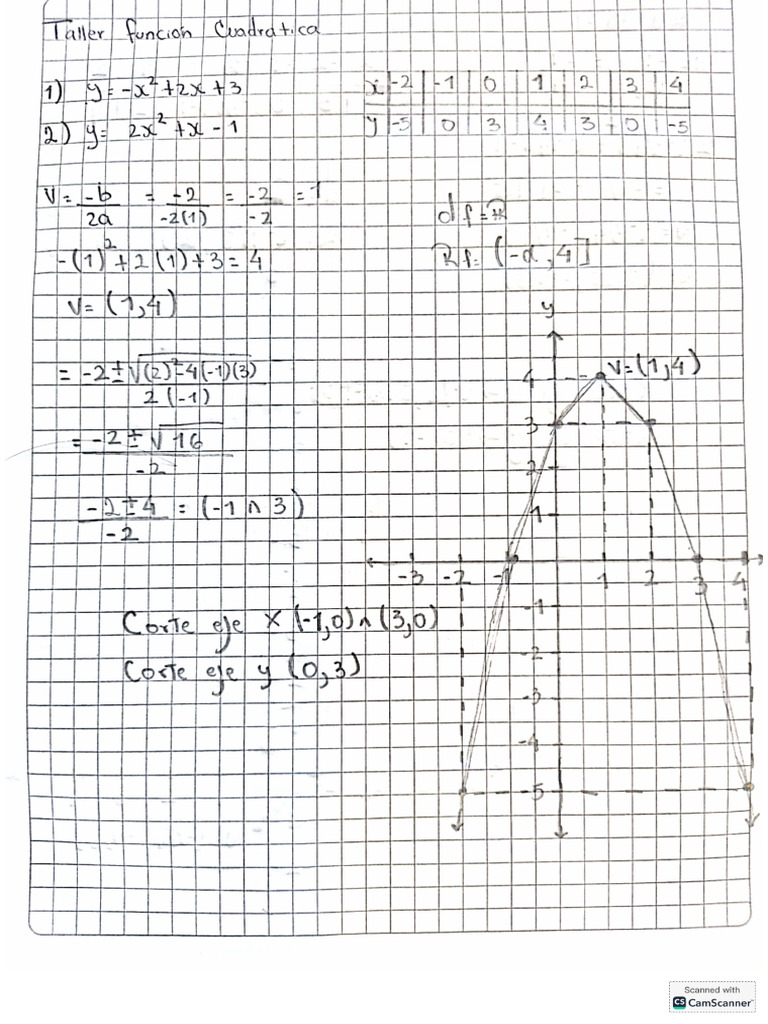 Taller función Cuadratica
1) y = -x² + 2x + 3
2) y = 2x² + x - 1
x | -2 | -1 | 0 | 1 | 2 | 3 | 4
y | -5 | 0 | 3 | 4 | 3 | 0 | -5
V = -b/2a = -2/-2(1) = -2/-2 = 1
-(1)² + 2(1) + 3 = 4
V = (1,4)
df = ℝ
Rf: (-∞, 4]
= -2 ± √(2)² - 4(-1)(3) / 2(-1)
= -2 ± √16 / -2
-2 ± 4 / -2 = (-1 ∧ 3)
Corte eje x (-1,0) ∧ (3,0)
Corte eje y (0,3)
y
V = (1,4)
4
3
2
1
-3 -2 -1 1 2 3 4
-1
-2
-3
-4
-5
Scanned with
CS CamScanner